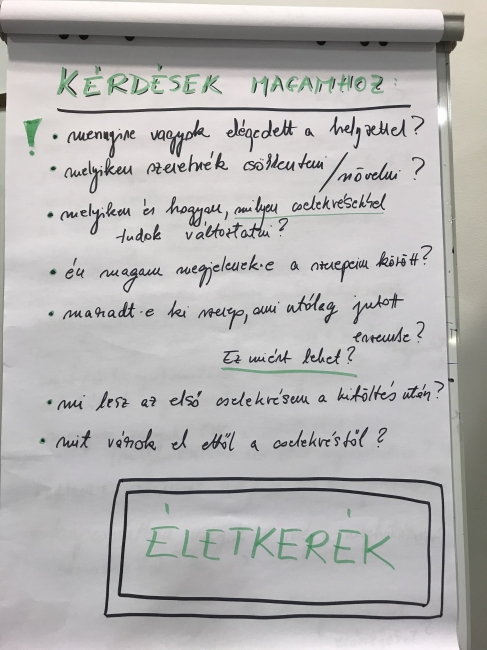 KÉRDÉSEK MAGAMHOZ:
! • mennyire vagyok elégedett a helyzettel?
• melyiken szeretnék csökkenteni / növelni?
• melyiken és hogyan, milyen cselekvésekkel
tudok változtatni?
• én magam megjelenek-e a szerepeim között?
• maradt-e ki szerep, ami utólag jutott
eszembe?
Ez miért lehet?
• mi lesz az első cselekvésem a kitöltés után?
• mit várok el ettől a cselekvéstől?
ÉLETKERÉK